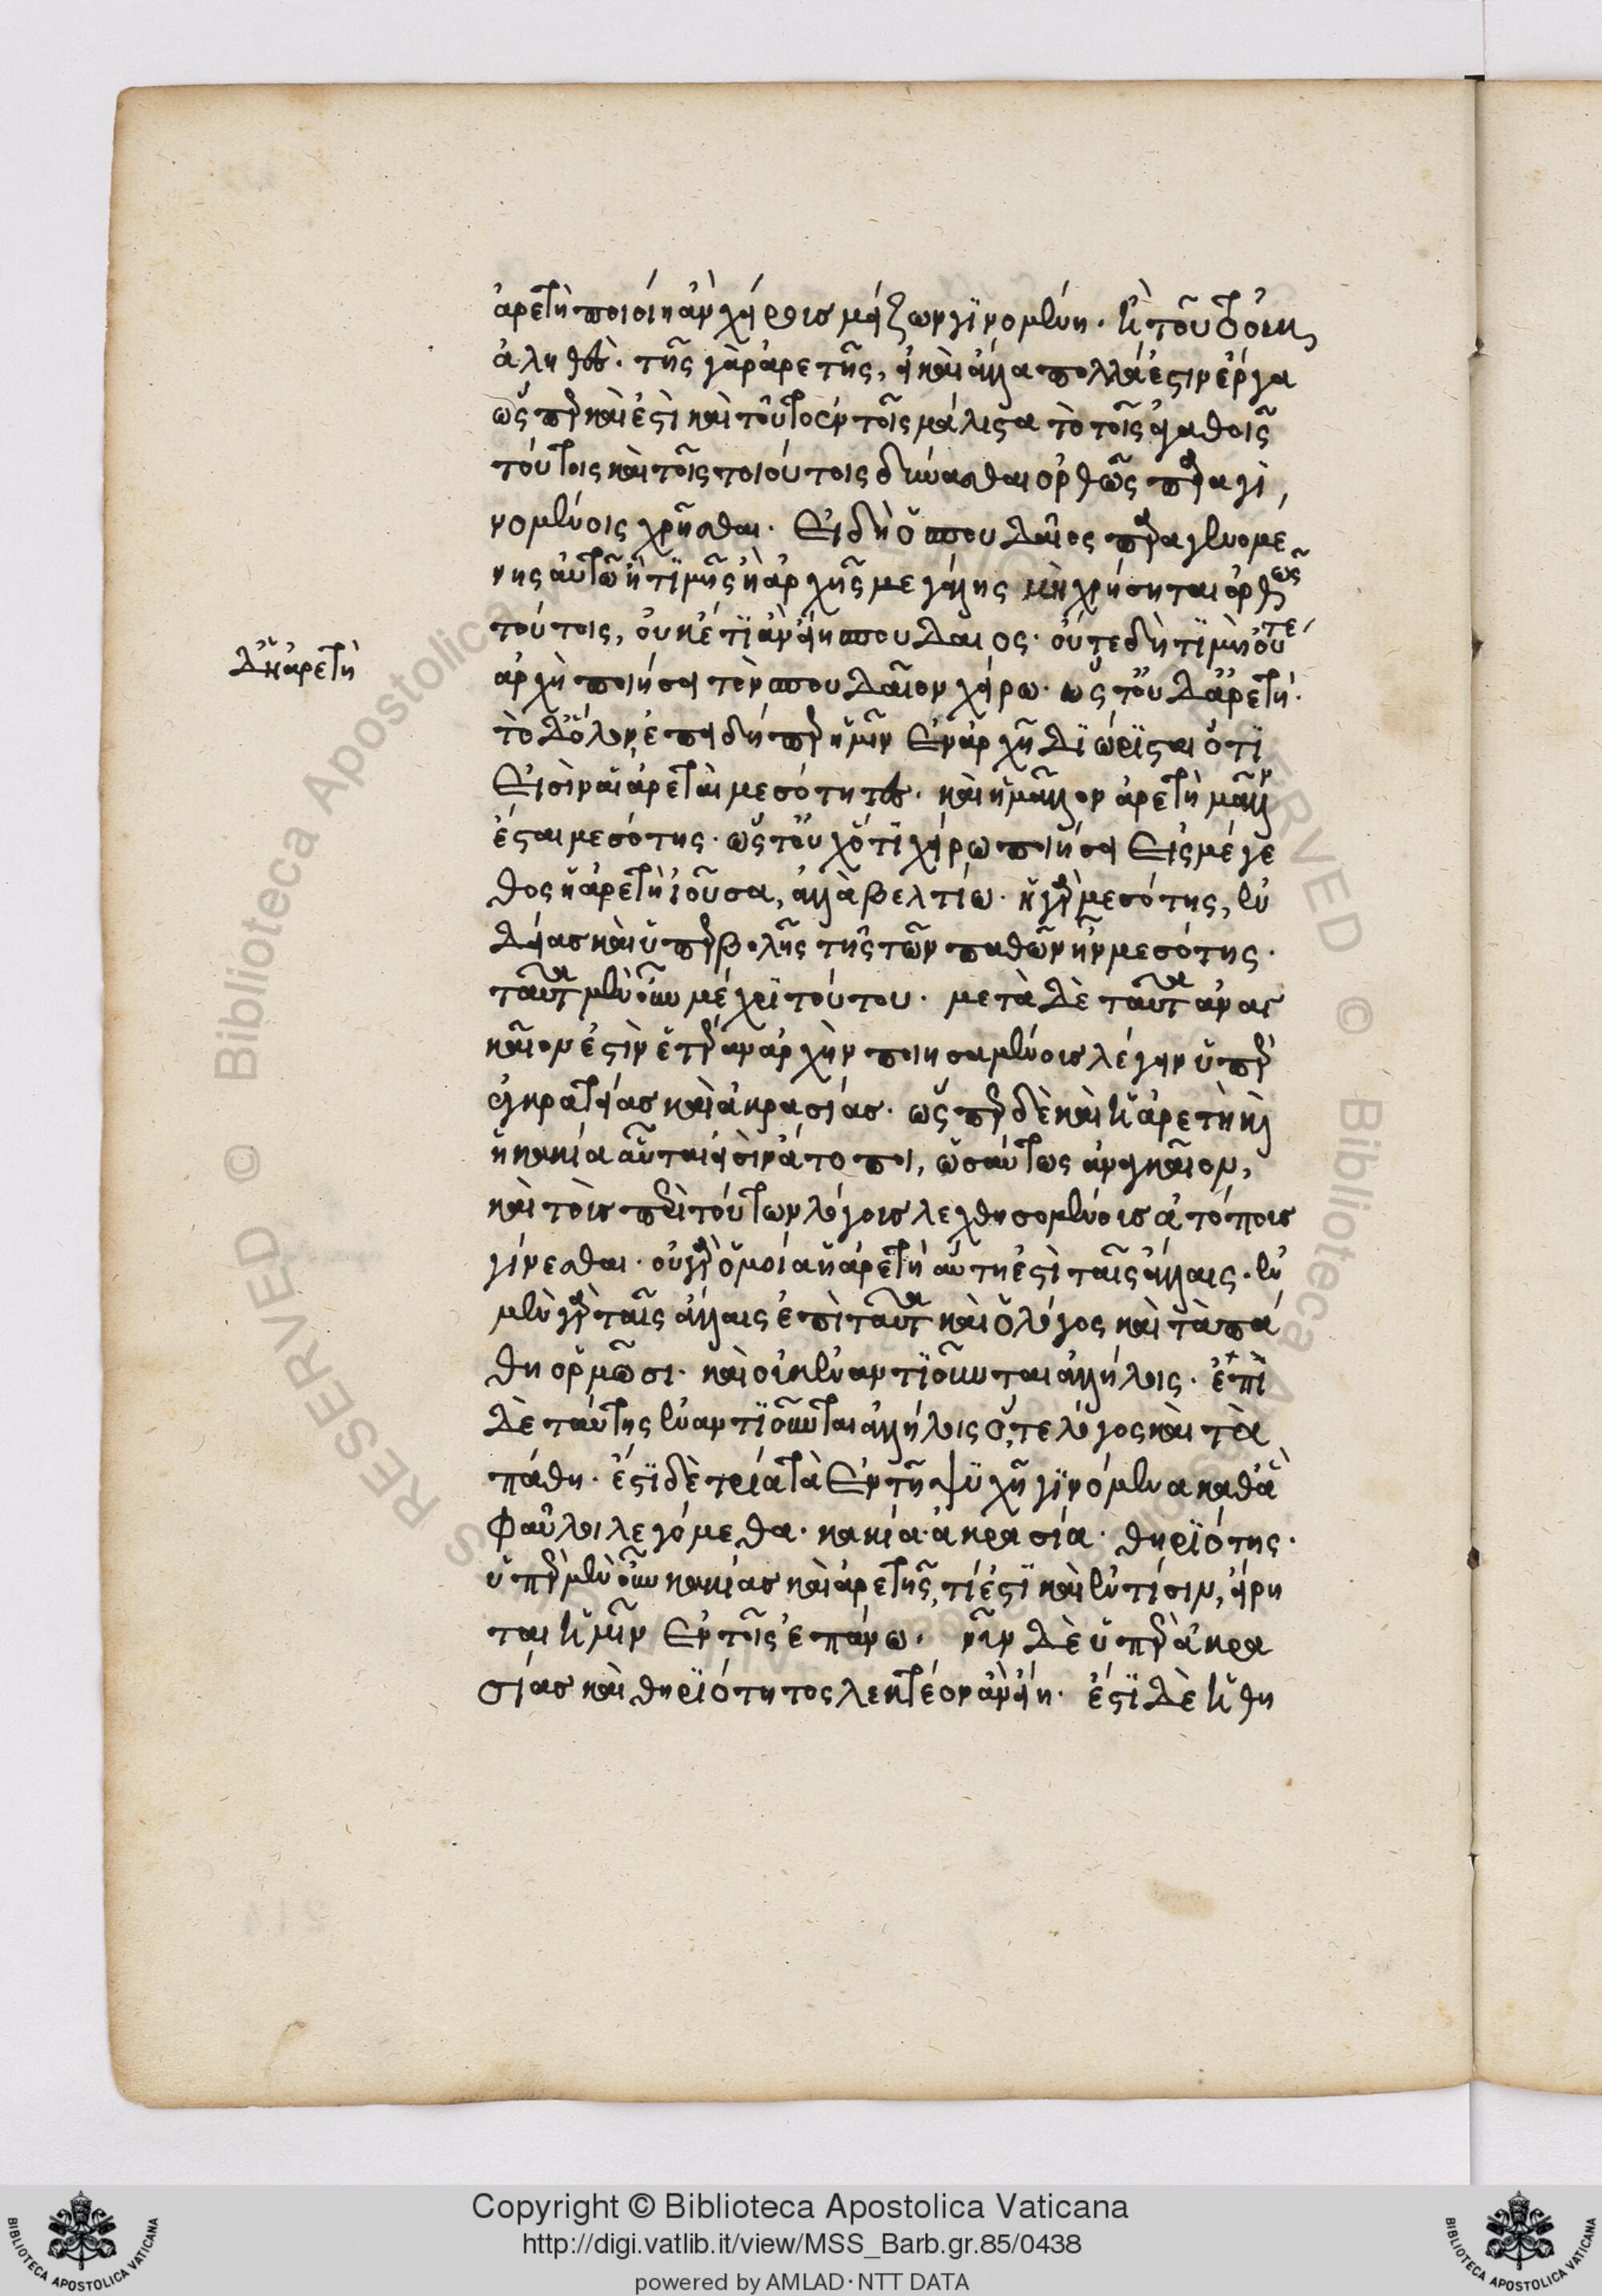 ἀρετὴ ποιοίη ἂν χείρους μείζων γινομένη. ἢ τοῦτο οὐκ
ἀληθές. τῆς γὰρ ἀρετῆς, εἰ καὶ ἄλλα πολλά ἐστιν ἔργα
ὥσπερ καὶ ἐστὶ καὶ τοῦτο ἐν τοῖς μάλιστα τὸ τοῖς ἀγαθοῖς
τούτοις καὶ τοῖς τοιούτοις δύνασθαι ὀρθῶς παραγι
νομένοις χρῆσθαι. Εἰ δὴ ὁ σπουδαῖος παραγενομέ
νης αὐτῶ ἢ τιμῆς ἢ ἀρχῆς μεγάλης μὴ χρήσηται ὀρθῶς
τούτοις, οὐκέτι ἂν εἴη σπουδαῖος. οὔτε δὴ τιμὴ οὔτε
ἀρχὴ ποιήσει τὸν σπουδαῖον χείρω. ὥστ' οὐδ' ἀρετή.
δ' ἡ ἀρετὴ
τὸ δ' ὅλον, ἐπειδήπερ ἡμῖν Ἐν ἀρχῆ διώρισται ὅτι
Εἰσὶν αἱ ἀρεταὶ μεσότητες. καὶ ἡ μᾶλλον ἀρετὴ μᾶλλον
ἔσται μεσότης. ὥστ' οὐχ ὅτι χείρω ποιήσει Εἰς μέγε
θος ἡ ἀρετὴ ἰοῦσα, ἀλλὰ βελτίω. ἡ γὰρ μεσότης, ἐν
δείας καὶ ὑπερβολῆς τῆς τῶν παθῶν ἦν μεσότης.
ταῦτα μὲν οὖν μέχρι τούτου. μετὰ δὲ ταῦτα ἀναγ
καῖον ἐστὶν ἑτέραν ἀρχὴν ποιησαμένοις λέγειν ὑπὲρ
ἐγκρατείας καὶ ἀκρασίας. ὥσπερ δὲ καὶ ἡ ἀρετὴ καὶ
ἡ κακία αὗται εἰσὶν ἄτοποι, ὡσαύτως ἀναγκαῖον,
καὶ τοὺς περὶ τούτων λόγους λεχθησομένους ἀτόπους
γίνεσθαι. οὐ γὰρ ὁμοία ἡ ἀρετὴ αὕτη ἐστὶ ταῖς ἄλλαις. ἐν
μὲν γὰρ ταῖς ἄλλαις ἐπὶ ταῦτα καὶ ὁ λόγος καὶ τὰ πά
θη ὁρμῶσι. καὶ οὐκ ἐναντιοῦνται ἀλλήλοις. ἐπὶ
δὲ ταύτης ἐναντιοῦνται ἀλλήλοις ὅ,τε λόγος καὶ τὰ
πάθη. ἔστι δὲ τρία τὰ Ἐν τῆ ψυχῆ γινόμενα καθ' ἃ
Φαῦλοι λεγόμεθα. κακία. ἀκρασία. θηριότης.
ὑπὲρ μὲν οὖν κακίας καὶ ἀρετῆς, τί ἐστι καὶ ἐν τίσιν, εἴρη
ται ἡμῖν Ἐν τοῖς ἐπάνω. νῦν δὲ ὑπὲρ ἀκρα
σίας καὶ θηριότητος λεκτέον ἂν εἴη. ἔστι δὲ ἡ θη